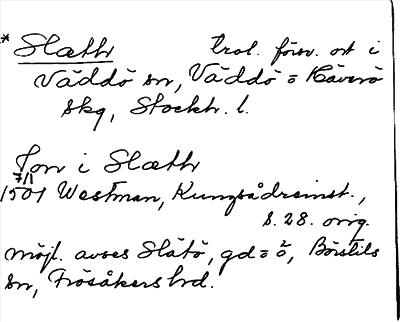 * Slæth trol. försv. ort i
Väddö sn, Väddö o Häverö
skg, Stockh. l.
Jon i Slæth
7/1
1501 Westman, Kungsådreinst.,
s. 28. orig.
möjl. avses Slätö, gd o ö, Börstils
sn, Frösåkers hd.